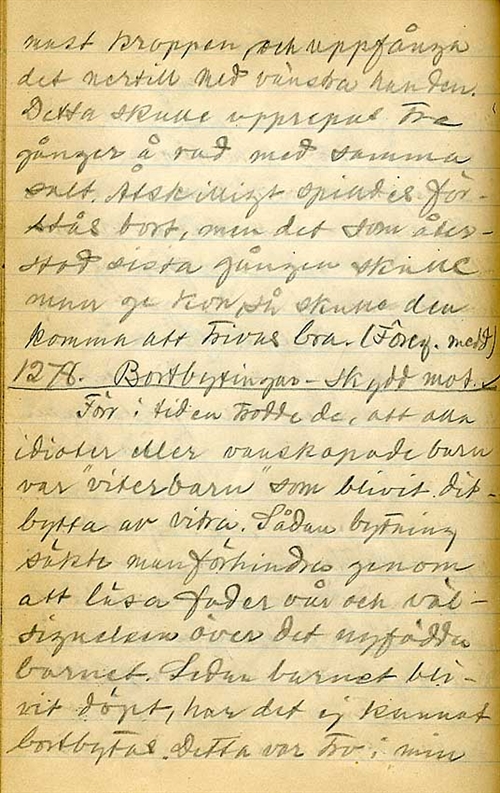 runt kroppen, och uppfånga
det nertill med vänstra handen.
Detta skulle upprepas tre
gånger å rad med samma
salt. Åtskilligt spildes för-
stås bort, men det som åter-
stod sista gången skulle
man ge kon, så skulle den
komma att trivas bra. (Föreg. medd)
127A. Bortbytingar - skydd mot.
Förr i tiden trodde de, att alla
idioter eller vanskapade barn
var "viterbarn" som blivit dit-
bytta av vitra. Sådan bytning
sökte man förhindra genom
att läsa fader vår och väl-
signelsen över det nyfödda
barnet. Sedan barnet bli-
vit döpt, har det ej kunnat
bortbytas. Detta var tro i min